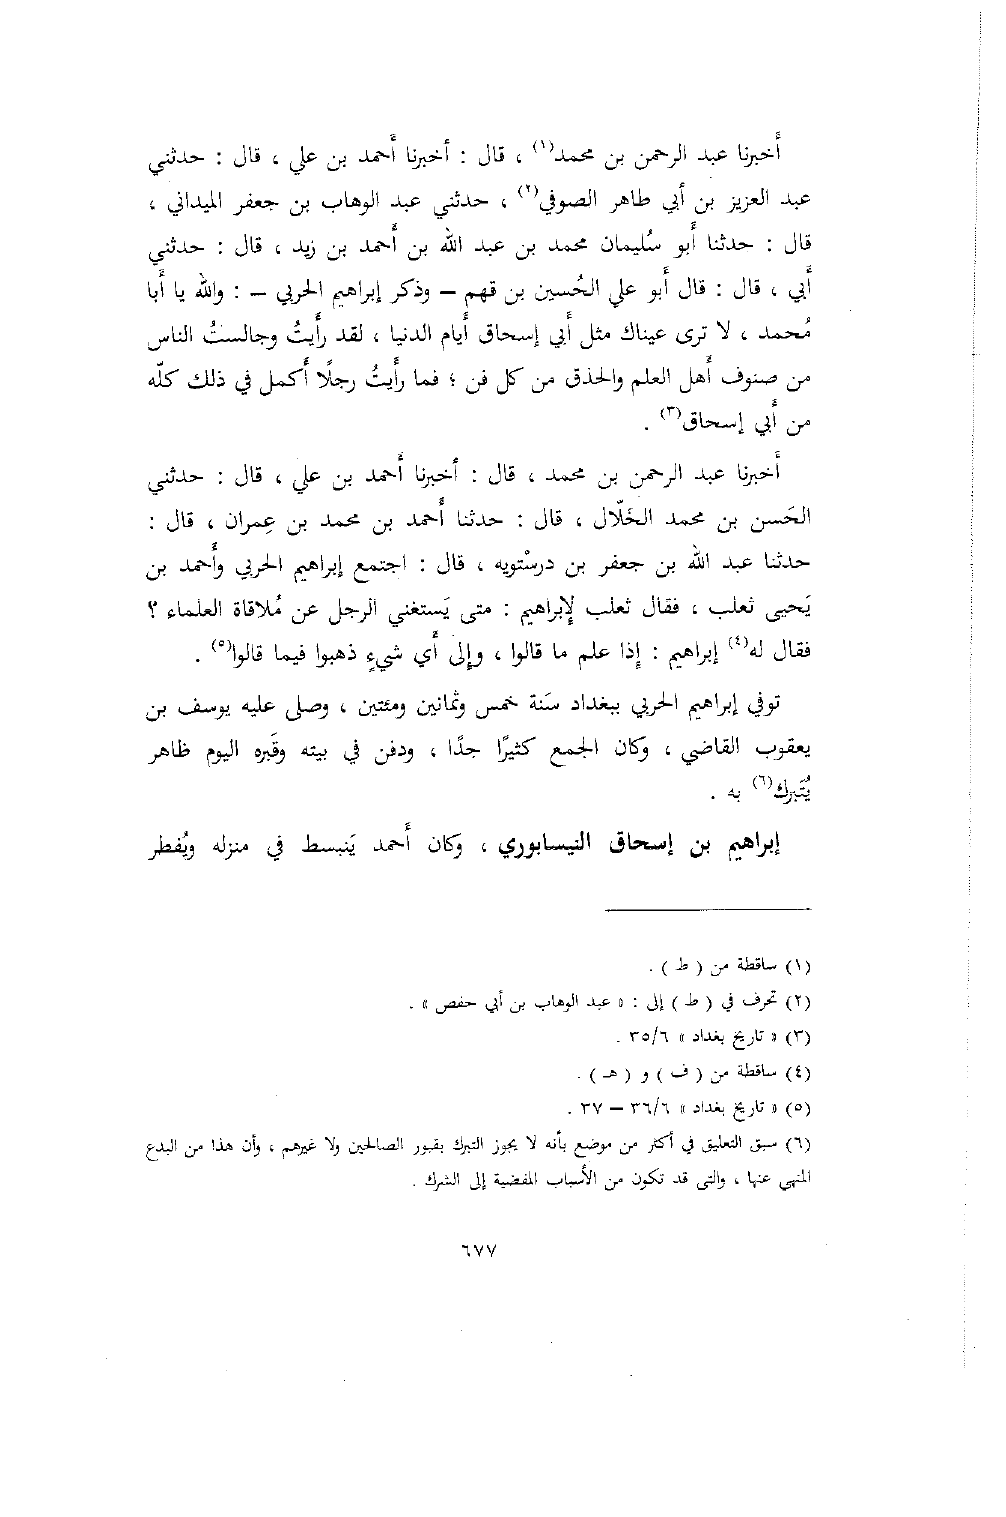 أَخبرنا عبد الرحمن بن محمد(١) ، قال : أخبرنا أَحمد بن علي ، قال : حدثني
عبد العزيز بن أَبي طاهر الصوفي(٢) ، حدثني عبد الوهاب بن جعفر الميداني ،
قال : حدثنا أَبو سُليمان محمد بن عبد الله بن أَحمد بن زيد ، قال : حدثني
أَبي ، قال : قال أَبو علي الحُسين بن قهم – وذكر إبراهيم الحربي – : والله يا أَبا
مُحمد ، لا ترى عيناك مثل أَبي إسحاق أَيام الدنيا ، لقد رأَيتُ وجالستُ الناس
من صنوف أَهل العلم والحذق من كل فن ؛ فما رأَيتُ رجلًا أَكمل في ذلك كلّه
من أَبي إسحاق(٣) .
أَخبرنا عبد الرحمن بن محمد ، قال : أخبرنا أَحمد بن علي ، قال : حدثني
الحَسن بن محمد الخَلّال ، قال : حدثنا أَحمد بن محمد بن عِمران ، قال :
حدثنا عبد الله بن جعفر بن درسْتويه ، قال : اجتمع إبراهيم الحربي وأَحمد بن
يَحيى ثعلب ، فقال ثعلب لإِبراهيم : متى يَستغني الرجل عن مُلاقاة العلماء ؟
فقال له(٤) إبراهيم : إِذا علم ما قالوا ، وإِلى أَي شيءٍ ذهبوا فيما قالوا(٥) .
توفي إبراهيم الحربي ببغداد سَنة خمس وثمانين ومئتين ، وصلى عليه يوسف بن
يعقوب القاضي ، وكان الجمع كثيرًا جدًا ، ودفن في بيته وقَبره اليوم ظاهر
يُتَبرك(٦) به .
إبراهيم بن إسحاق النيسابوري ، وكان أَحمد يَنبسط في منزله ويُفطر
(١) ساقطة من ( ط ) .
(٢) تحرف في ( ط ) إلى : « عبد الوهاب بن أبي حفص » .
(٣) « تاريخ بغداد » ٣٥/٦ .
(٤) ساقطة من ( ف ) و ( هـ ) .
(٥) « تاريخ بغداد » ٣٦/٦ – ٣٧ .
(٦) سبق التعليق في أكثر من موضع بأنه لا يجوز التبرك بقبور الصالحين ولا غيرهم ، وأن هذا من البدع
المنهي عنها ، والتي قد تكون من الأسباب المفضية إلى الشرك .
٦٧٧